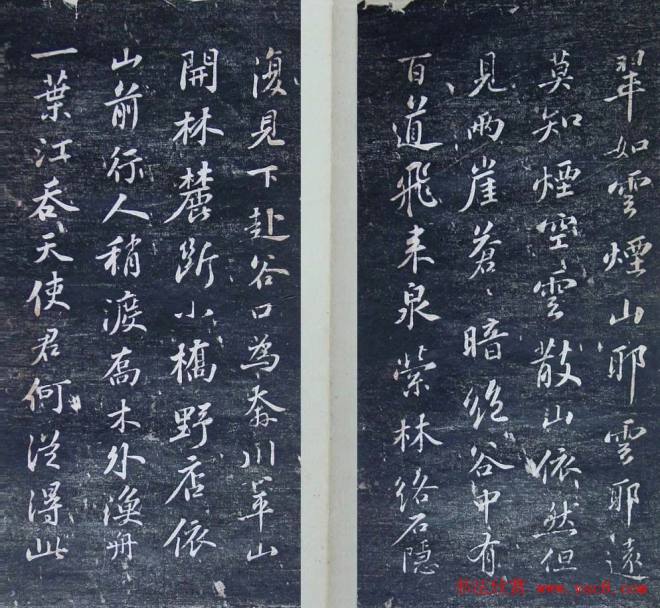 翠如雲煙山耶雲耶遠
莫知煙空雲散山依然但
見兩崖蒼〻暗絕谷中有
百道飛来泉縈林絡石隱
復見下赴谷口為奔川平山
開林麓斷小橋野店依
山前行人稍渡喬木外漁舟
一葉江吞天使君何從得此
书法欣赏 www.yac8.com